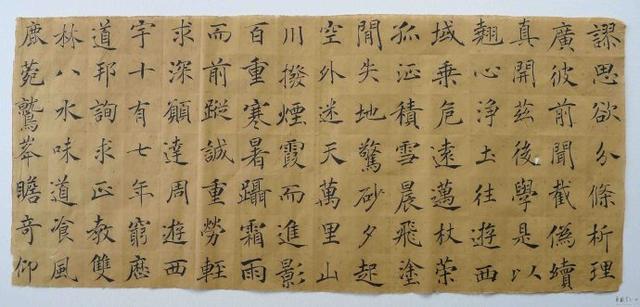 謬思欲分條析理
廣彼前聞截偽續
真開茲後學是以
翹心淨土往遊西
域乘危遠邁杖策
孤征積雪晨飛塗
閒失地驚砂夕起
空外迷天萬里山
川撥煙霞而進影
百重寒暑躡霜雨
而前蹤誠重勞輕
求深願達周遊西
宇十有七年窮歷
道邦詢求正教雙
林八水味道飡風
鹿菀鷲峯瞻奇仰